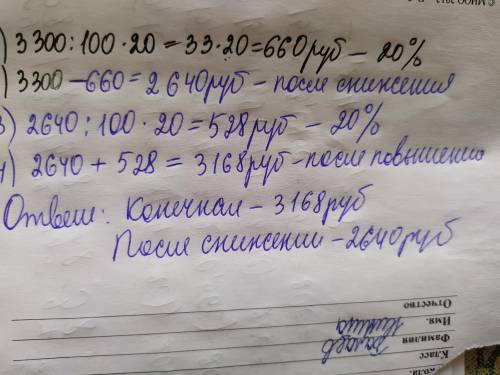 ) 3300:100·20=33·20=660руб – 20%
) 3300–660=2640руб – после снижения
3) 2640:100·20=528руб – 20%
4) 2640+528=3168руб–после повышению
Ответ: Конечная – 3168руб
После снижении – 2640руб
Отчество
Имя.
Фамилия
Класс
кола.